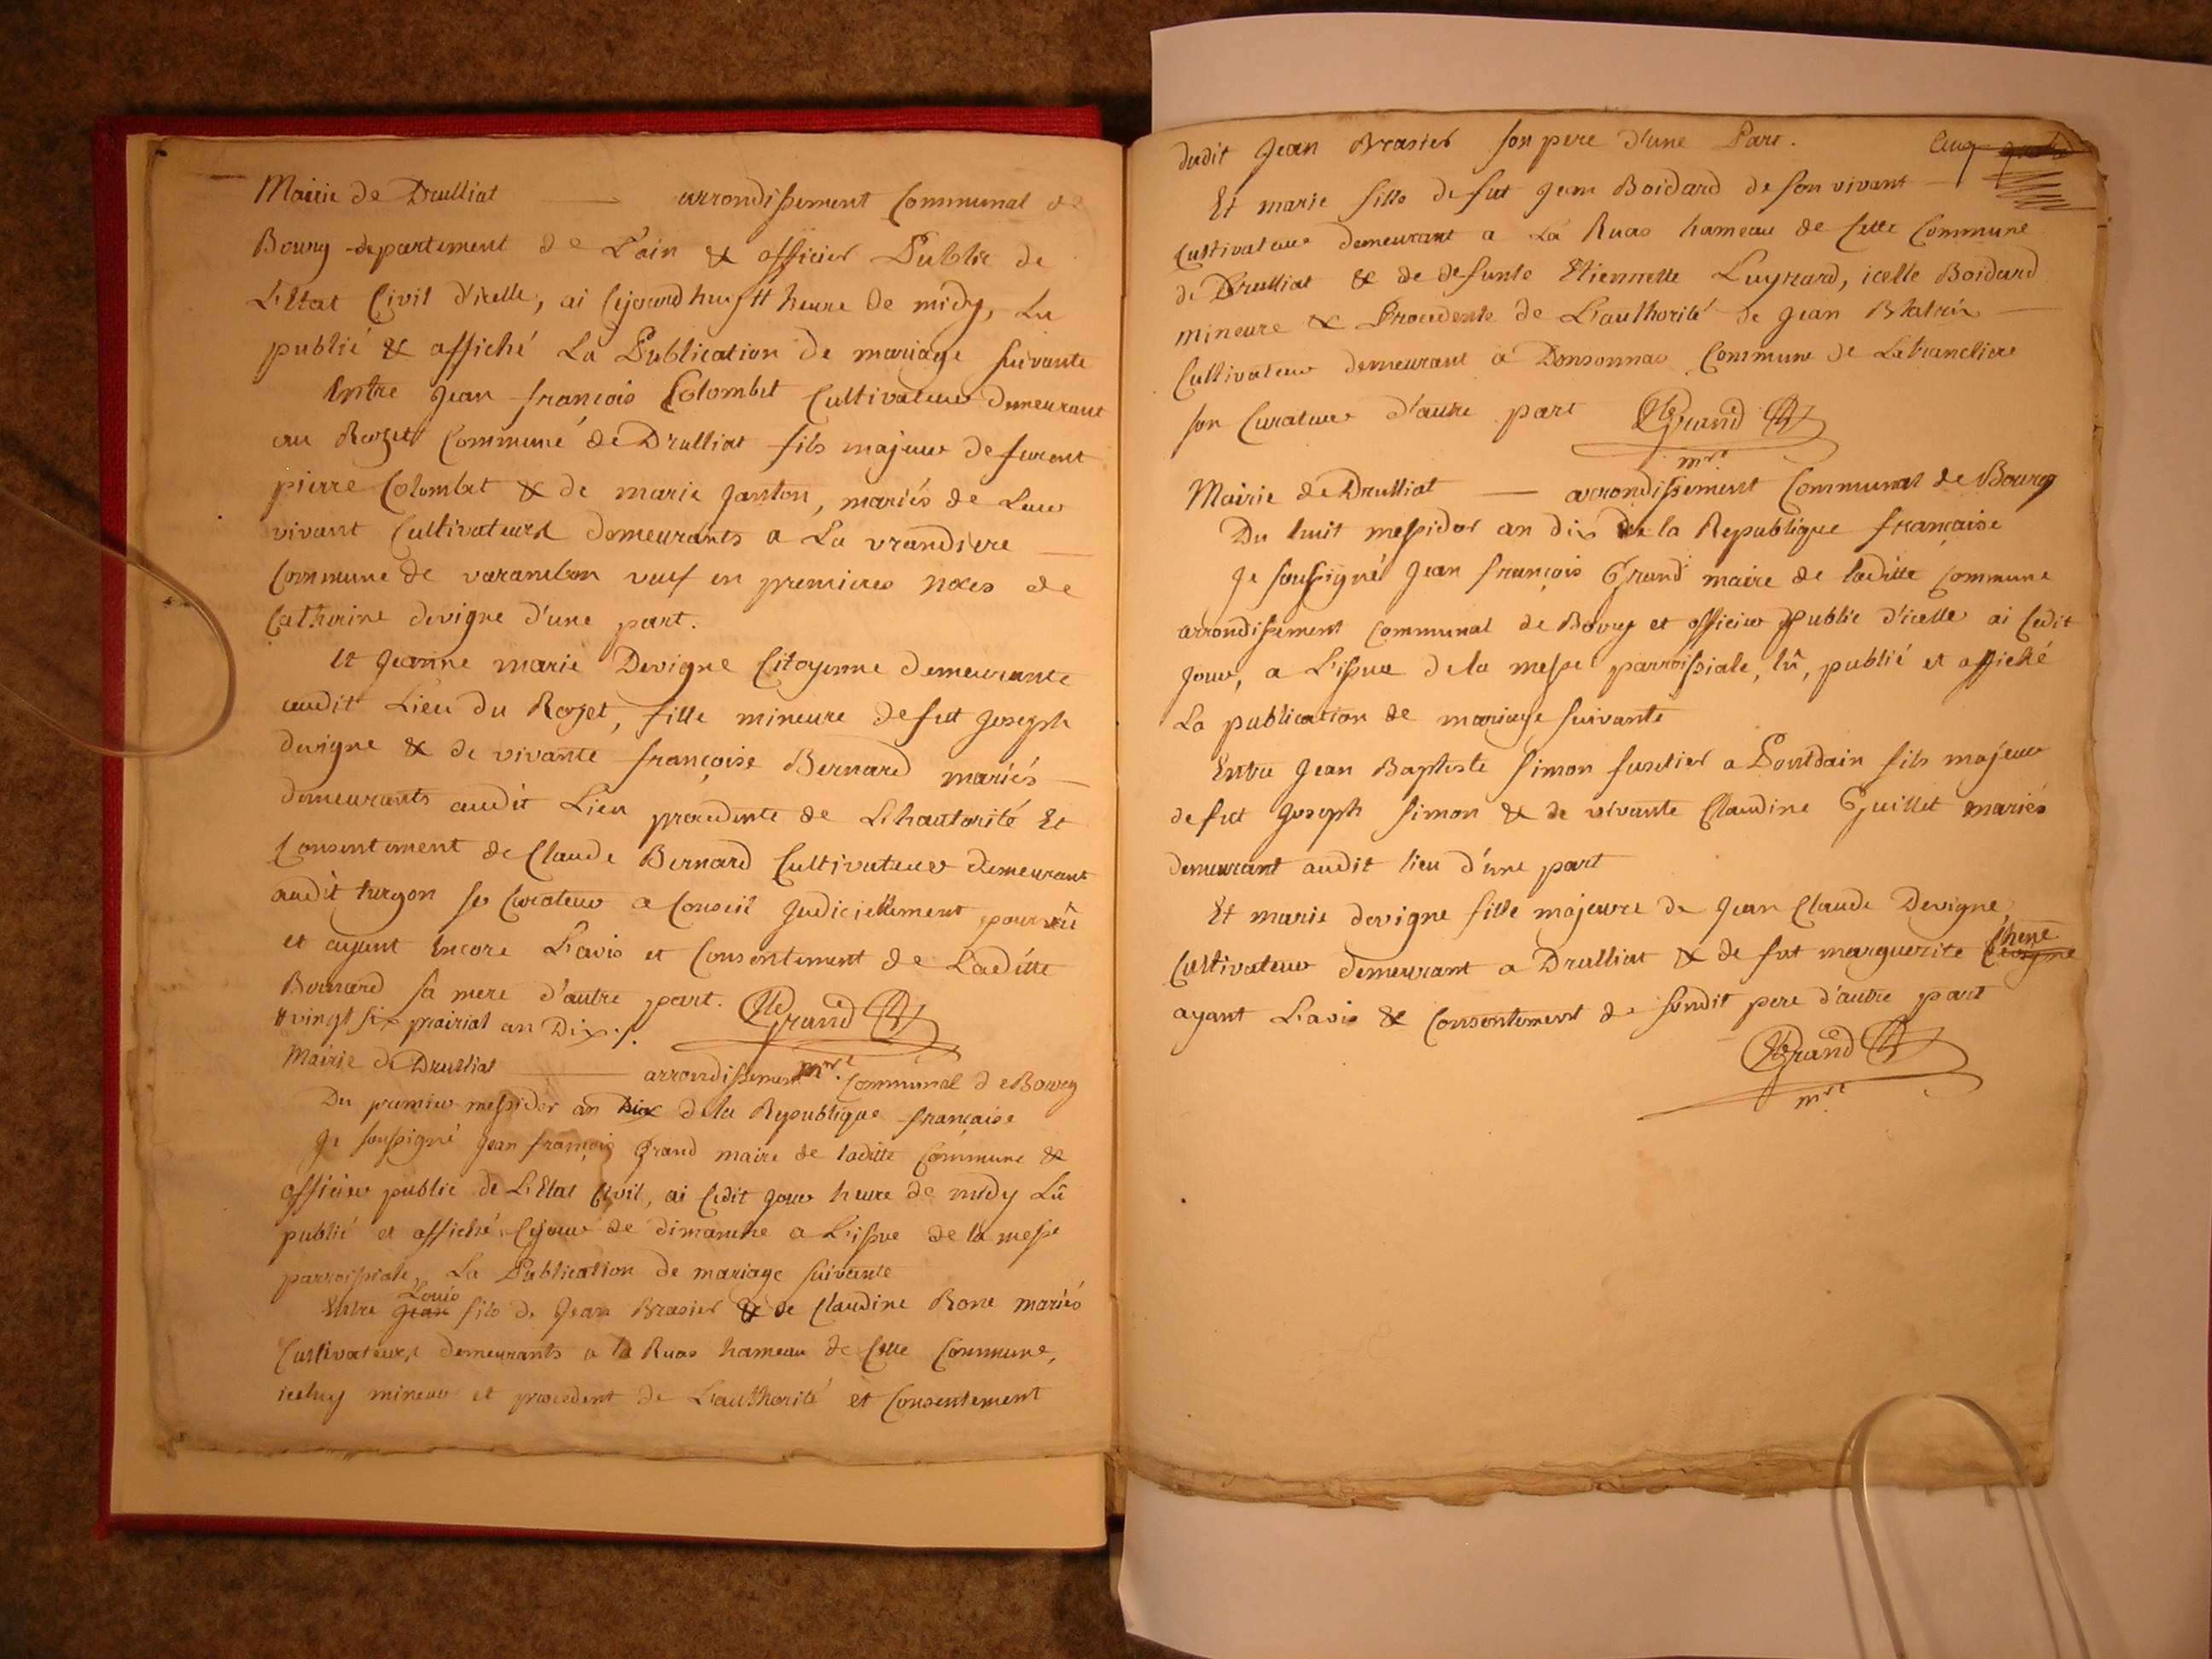 Mairie de Drulliat — arrondissement Communal de
Bourg departement de L'ain & officier Public de
L'Etat Civil d'icelle, ai Cejourd'huy # heure de midy, Lu
publié & affiché La Publication de mariage suivante
Entre Jean françois Colombet Cultivateur demeurant
au Rozet Commune de Drulliat fils majeur de furent
pierre Colombet & de marie Janton, mariés de Leur
vivant Cultivateurs demeurants a La vrandiere
Commune de varambon veuf en premieres noces de
Catherine devigne d'une part.
Et Jeanne marie Devigne Citoyenne demeurante
audit Lieu du Rozet, fille mineure de fut Joseph
devigne & de vivante françoise Bernard mariés
demeurants audit Lieu procedente de L'hautorité Et
Consentement de Claude Bernard Cultivateur demeurant
audit turgon so Curateur a Conseil Judiciellement pourvû
et ayant Encore L'avis et Consentement de Laditte
Bernard sa mere d'autre part. Grand
# vingt six prairial an Dix./. mre
Mairie de Drulliat — arrondissement Communal de Bourg
Du premier messidor an Dix de la Republique française
Je soussigné Jean françois Grand maire de laditte Commune &
officier public de L'Etat Civil, ai Cedit Jour heure de midy Lû
publié et affiché Cejour de dimanche a L'issue de la messe
parroissiale, La Publication de mariage suivante
Louis
Entre Jean fils de Jean Brasier & de Claudine Rone mariés
Cultivateurs demeurants a la Ruas hameau de Cette Commune,
iceluy mineur et procedent de L'authorité et Consentement
dudit Jean Brasier son pere d'une Part.
Et marie fille de fut Jean Boidard de son vivant
Cultivateur demeurant a La Ruas hameau de Cette Commune
de Drulliat & de defunte Etiennette Luynard, icelle Boidard
mineure & Procedente de L'authorité de Jean
Cultivateur demeurant a Donsonnas Commune de Latrancliere
son Curateur d'autre part Grand
mre
Mairie de Drulliat — arrondissement Communal de Bourg
Du huit messidor an dix de la Republique française
Je soussigné Jean françois Grand maire de laditte Commune
arrondissement Communal de Bourg et officier Public d'icelle ai Cedit
Jour, a L'issue de la messe parroissiale, lû, publié et affiché
La publication de mariage suivante
Entre Jean Baptiste Simon fuselier a Pontdain fils majeur
de fut Joseph Simon & de vivante Claudine Guillet mariés
demeurant audit lieu d'une part
Et marie devigne fille majeure de Jean Claude Devigne,
Chene
Cultivateur demeurant a Drulliat & de fut marguerite Devigne
ayant L'avis & Consentement de sondit pere d'autre part
Grand
mre